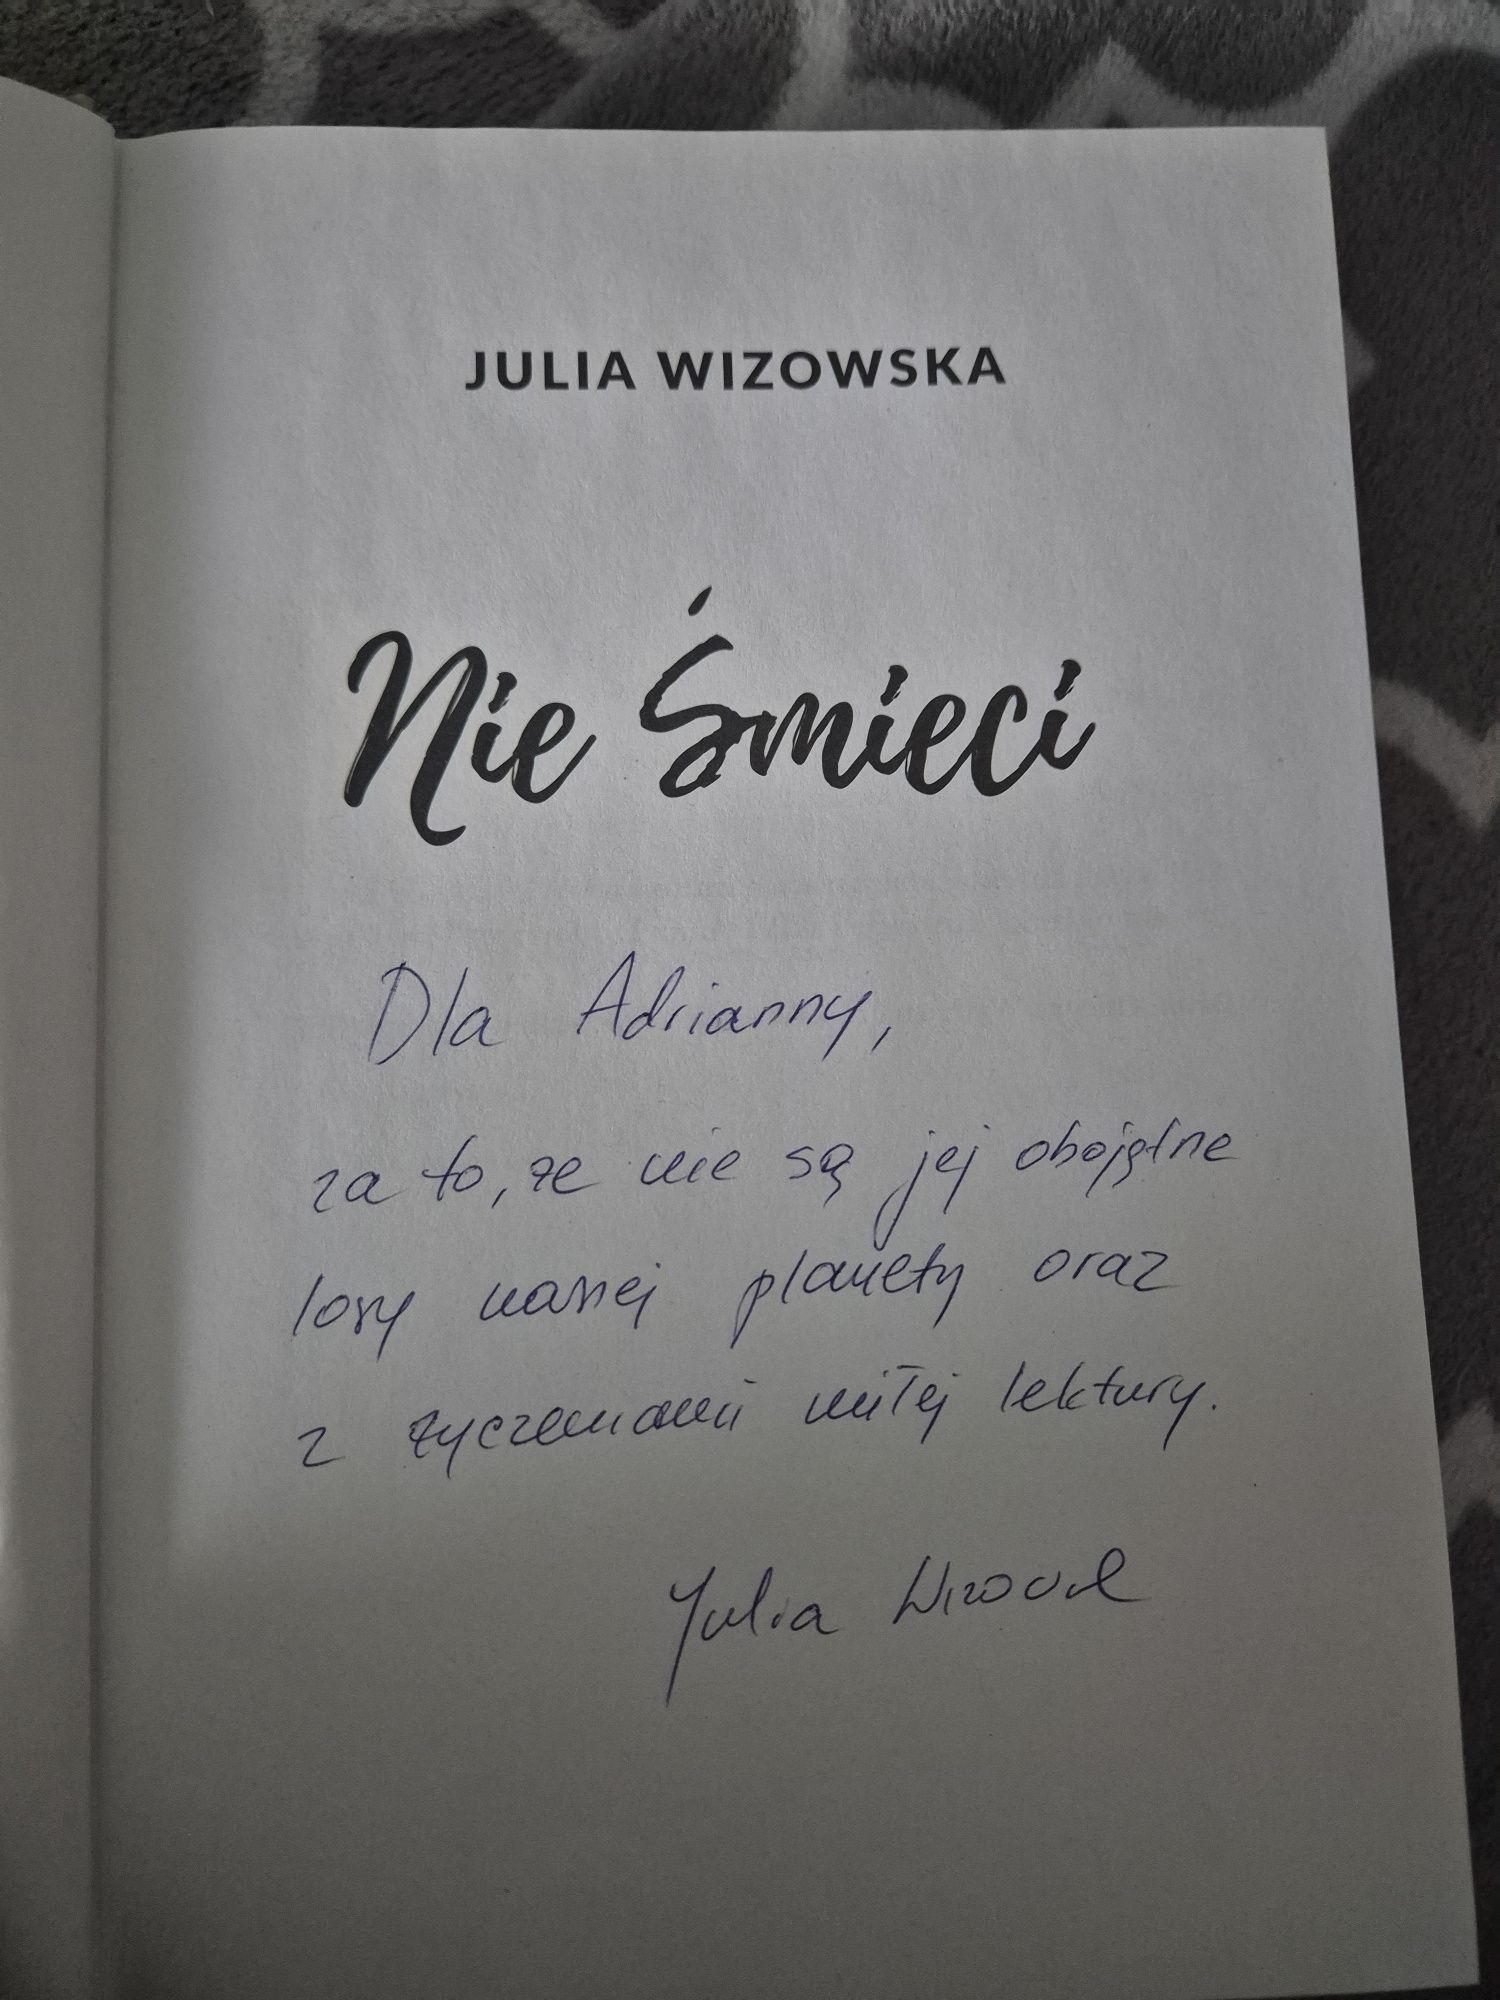 JULIA WIZOWSKA
Nie Śmieci
Dla Adrianny,
za to, że nie są jej obojętne
losy naszej planety oraz
z życzeniami miłej lektury.
Julia